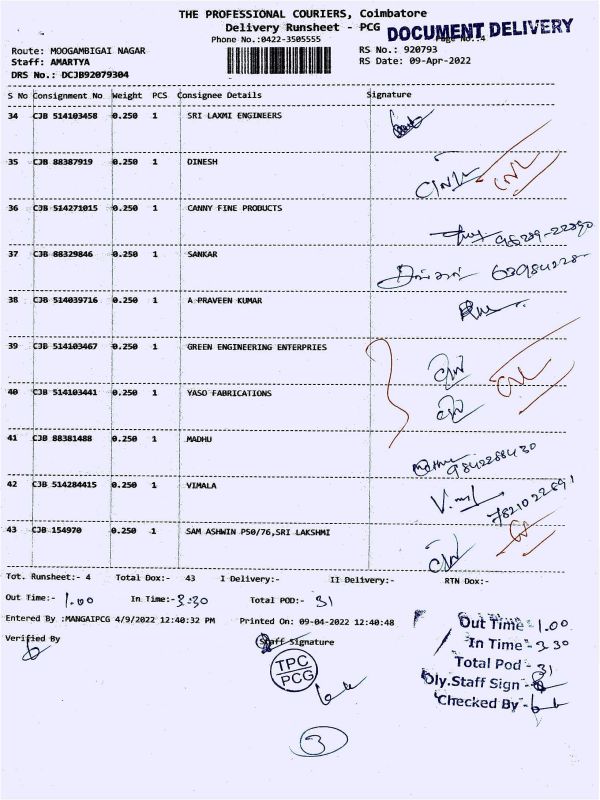 THE PROFESSIONAL COURIERS, Coimbatore
Delivery Runsheet - PCG
DOCUMENT DELIVERY
Phone No.:0422-3505555
Page No.:4
Route: MOOGAMBIGAI NAGAR
RS No.: 920793
Staff: AMARTYA
RS Date: 09-Apr-2022
DRS No.: DCJB92079304
S No Consignment No Weight PCS Consignee Details Signature
34 CJB 514103458 0.250 1 SRI LAXMI ENGINEERS
35 CJB 88387919 0.250 1 DINESH
36 CJB 514271015 0.250 1 CANNY FINE PRODUCTS
37 CJB 88329846 0.250 1 SANKAR
38 CJB 514039716 0.250 1 A PRAVEEN KUMAR
39 CJB 514103467 0.250 1 GREEN ENGINEERING ENTERPRIES
40 CJB 514103441 0.250 1 YASO FABRICATIONS
41 CJB 88381488 0.250 1 MADHU
Madhu 9842288430
42 CJB 514284415 0.250 1 VIMALA
43 CJB 154970 0.250 1 SAM ASHWIN P50/76,SRI LAKSHMI
Tot. Runsheet:- 4 Total Dox:- 43 I Delivery:- II Delivery:- RTN Dox:-
Out Time:- 1.00 In Time:- 3:30 Total POD:- 31
Entered By :MANGAIPCG 4/9/2022 12:40:32 PM Printed On: 09-04-2022 12:40:48
Verified By Staff Signature
TPC
PCG
Out Time - 1.00
In Time - 3.30
Total Pod - 31
Dly.Staff Sign -
Checked By -
3